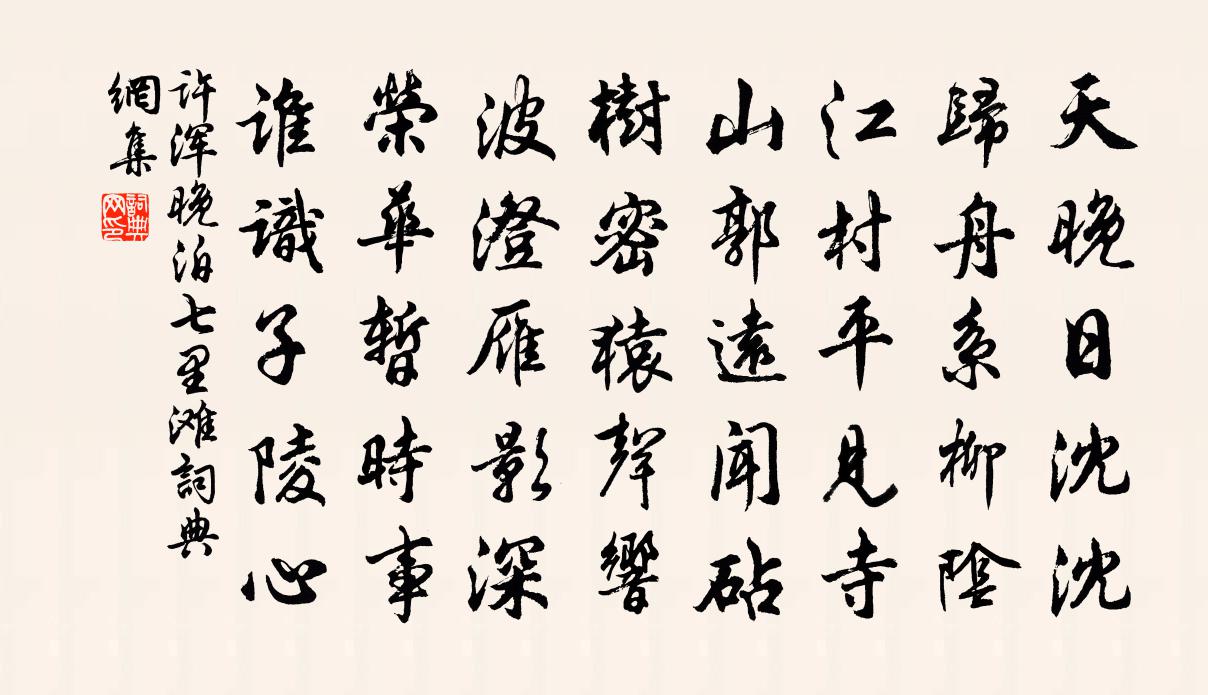 天晚日沈沈
歸舟系柳陰
江村平見寺
山郭遠聞砧
樹密猿聲響
波澄雁影深
榮華暫時事
誰識子陵心
许浑晚泊七里滩詞典
網集
詞典
网印